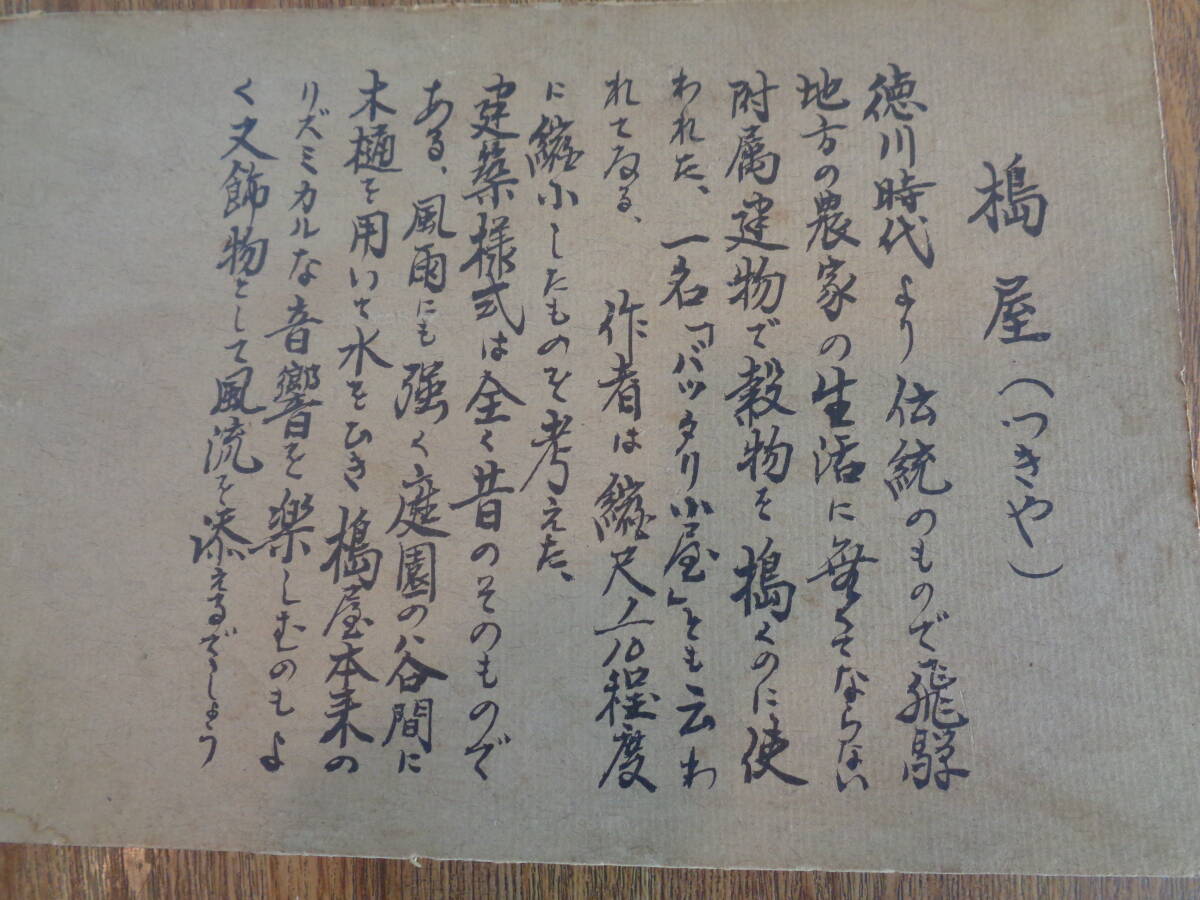 搗屋(つきや)
徳川時代より伝統のもので飛騨
地方の農家の生活に無くてならない
附属建物で穀物を搗くのに使
われた、一名「バッタリ小屋」とも云わ
れてゐる、　作者は縮尺1/10程度
に縮小したものを考えた、
建築様式は全く昔のそのもので
ある、風雨にも強く庭園の谷間に
木樋を用いて水をひき搗屋本来の
リズミカルな音響を楽しむのもよ
く又飾物として風流を添えるでしょう